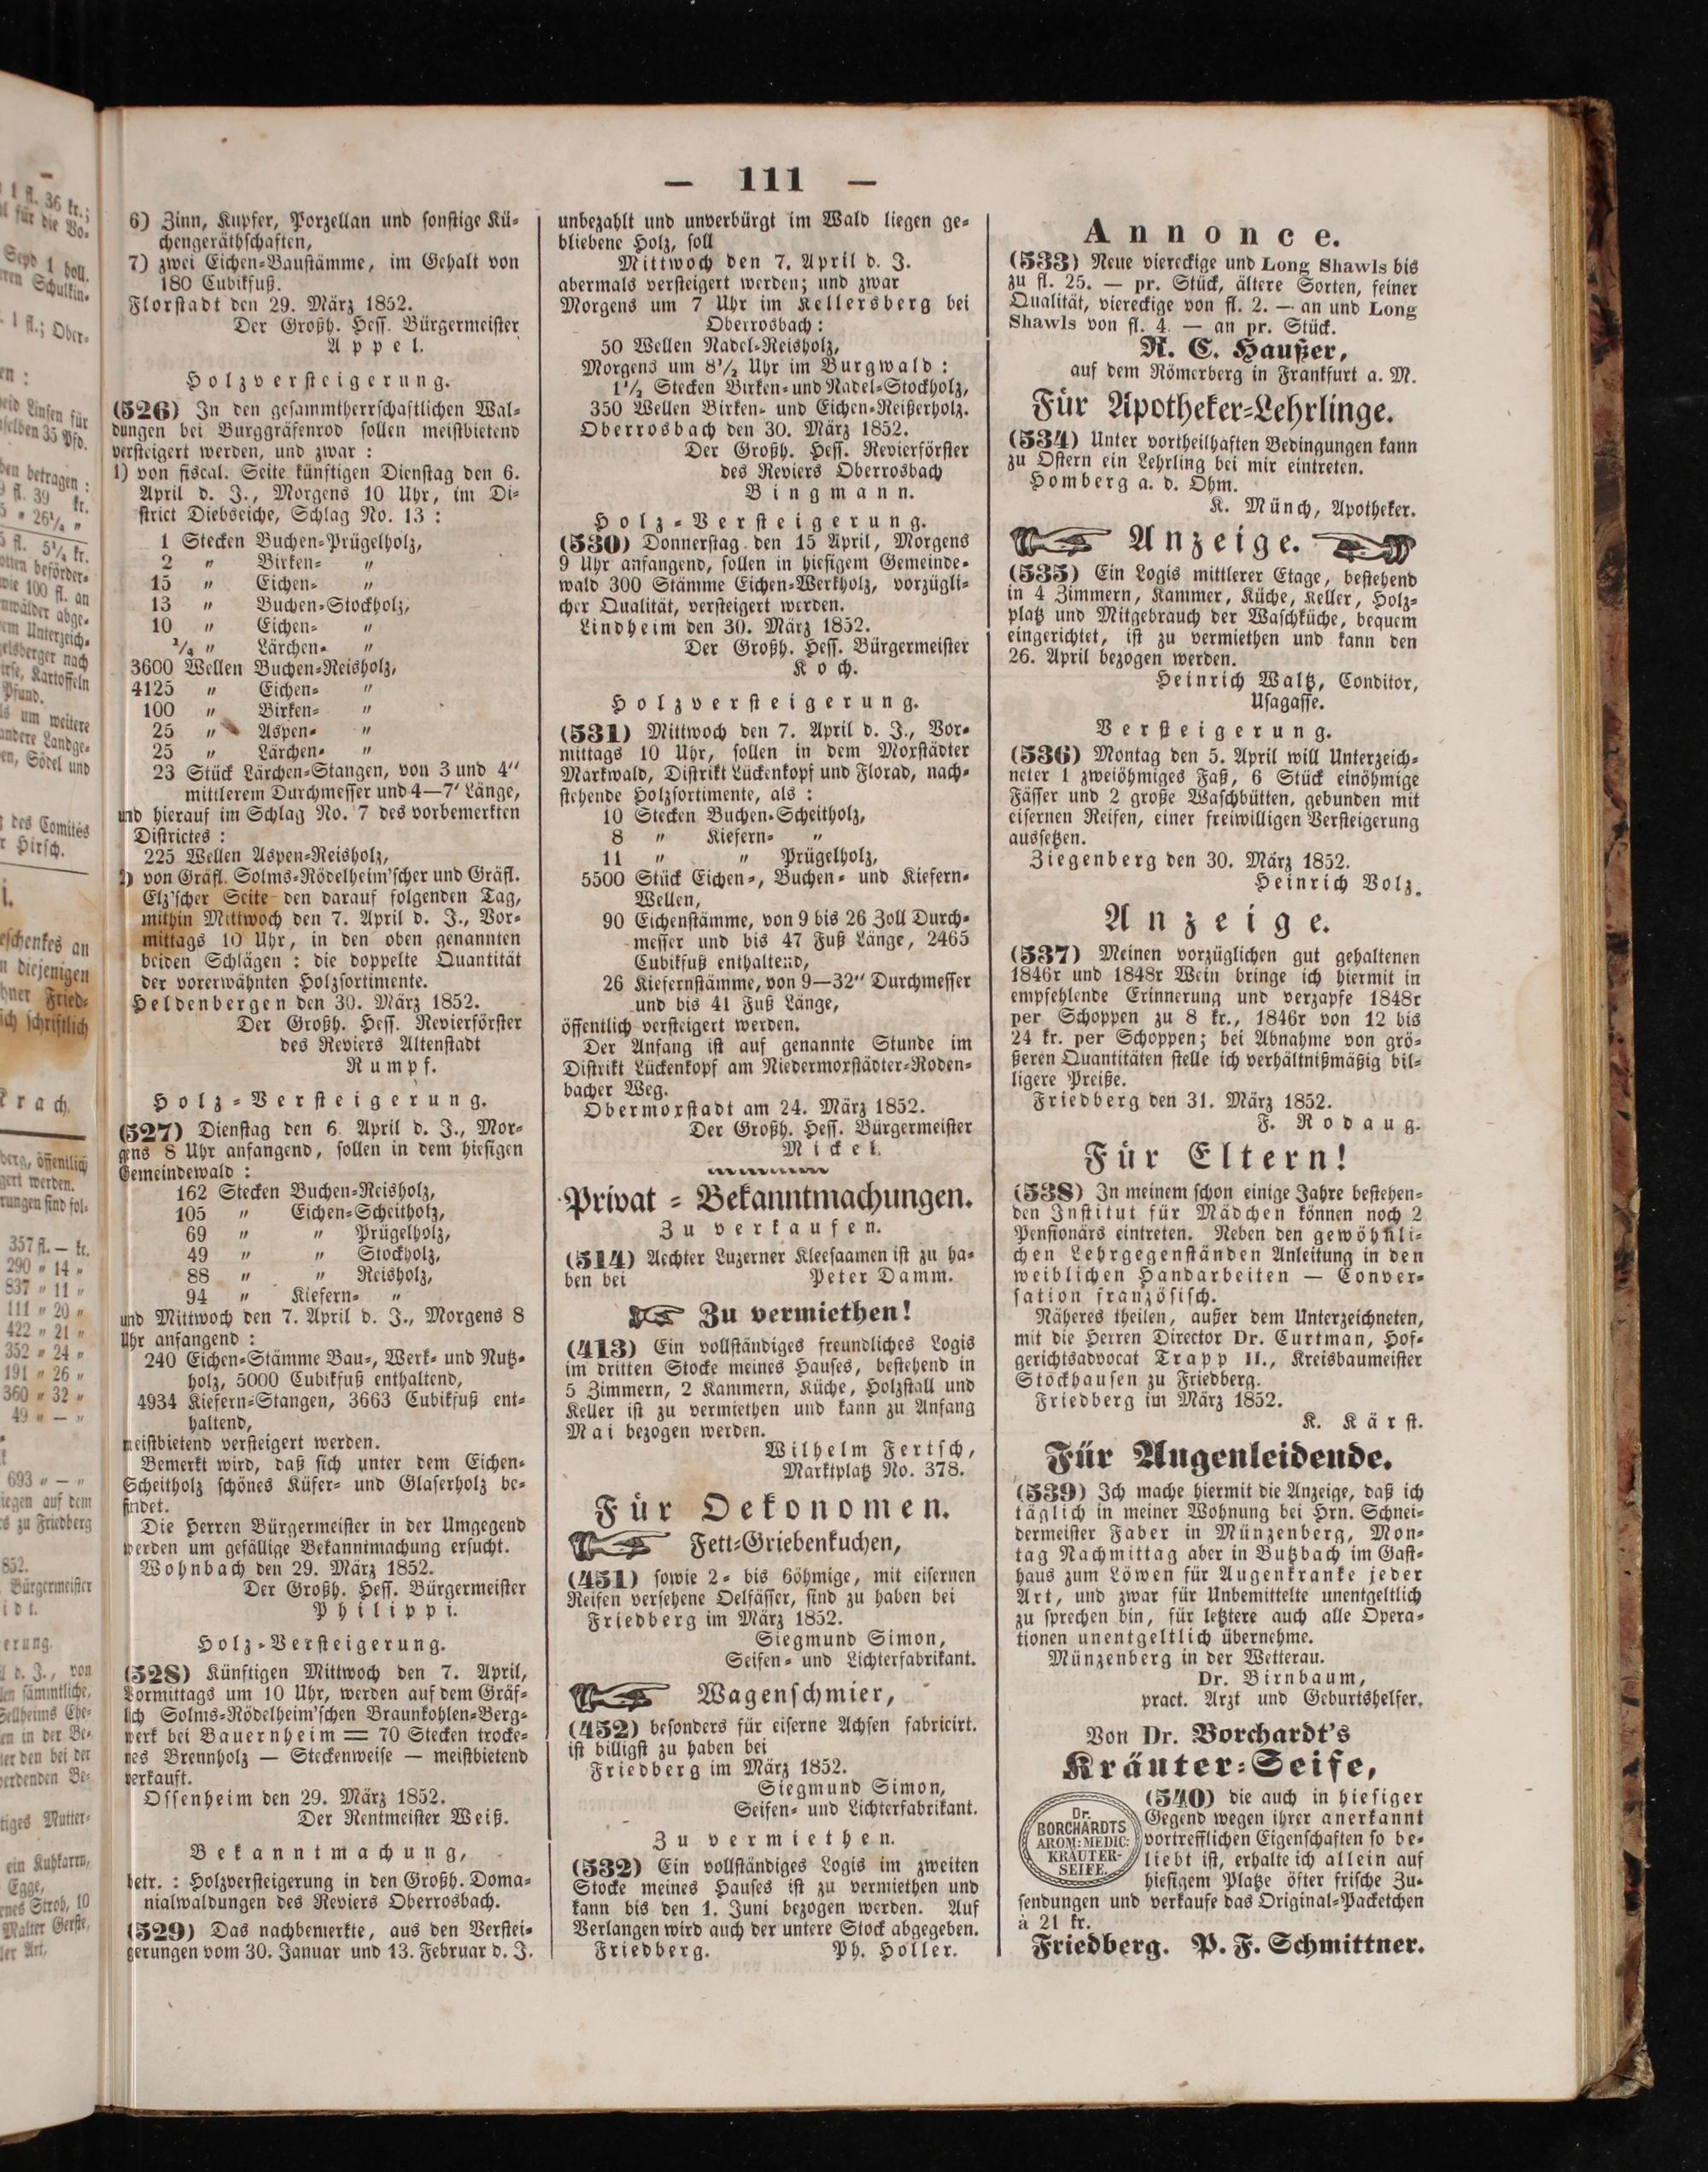 — 111 —
6) Zinn, Kupfer, Porzellan und sonstige Kü-
chengeräthschaften,
7) zwei Eichen-Baustämme, im Gehalt von
180 Cubikfuß.
Florstadt den 29. März 1852.
Der Großh. Hess. Bürgermeister
Appel.
Holzversteigerung.
(526) In den gesammtherrschaftlichen Wal-
dungen bei Burggräfenrod sollen meistbietend
versteigert werden, und zwar :
1) von fiscal. Seite künftigen Dienstag den 6.
April d. J., Morgens 10 Uhr, im Di-
strict Diebseiche, Schlag No. 13 :
1 Stecken Buchen-Prügelholz,
2 " Birken- "
15 " Eichen- "
13 " Buchen-Stockholz,
10 " Eichen- "
¹/₄ " Lärchen- "
3600 Wellen Buchen-Reisholz,
4125 " Eichen- "
100 " Birken- "
25 " Aspen- "
25 " Lärchen- "
23 Stück Lärchen-Stangen, von 3 und 4"
mittlerem Durchmesser und 4—7' Länge,
und hierauf im Schlag No. 7 des vorbemerkten
Districtes :
225 Wellen Aspen-Reisholz,
2) von Gräfl. Solms-Rödelheim'scher und Gräfl.
Elz'scher Seite den darauf folgenden Tag,
mithin Mittwoch den 7. April d. J., Vor-
mittags 10 Uhr, in den oben genannten
beiden Schlägen : die doppelte Quantität
der vorerwähnten Holzsortimente.
Heldenbergen den 30. März 1852.
Der Großh. Hess. Revierförster
des Reviers Altenstadt
Rumpf.
Holz-Versteigerung.
(527) Dienstag den 6. April d. J., Mor-
gens 8 Uhr anfangend, sollen in dem hiesigen
Gemeindewald :
162 Stecken Buchen-Reisholz,
105 " Eichen-Scheitholz,
69 " " Prügelholz,
49 " " Stockholz,
88 " " Reisholz,
94 " Kiefern- "
und Mittwoch den 7. April d. J., Morgens 8
Uhr anfangend :
240 Eichen-Stämme Bau-, Werk- und Nutz-
holz, 5000 Cubikfuß enthaltend,
4934 Kiefern-Stangen, 3663 Cubikfuß ent-
haltend,
meistbietend versteigert werden.
Bemerkt wird, daß sich unter dem Eichen-
Scheitholz schönes Küfer- und Glaserholz be-
findet.
Die Herren Bürgermeister in der Umgegend
werden um gefällige Bekanntmachung ersucht.
Wohnbach den 29. März 1852.
Der Großh. Hess. Bürgermeister
Philippi.
Holz-Versteigerung.
(528) Künftigen Mittwoch den 7. April,
Vormittags um 10 Uhr, werden auf dem Gräf-
lich Solms-Rödelheim'schen Braunkohlen-Berg-
werk bei Bauernheim = 70 Stecken trocke-
nes Brennholz — Steckenweise — meistbietend
verkauft.
Ossenheim den 29. März 1852.
Der Rentmeister Weiß.
Bekanntmachung,
betr. : Holzversteigerung in den Großh. Doma-
nialwaldungen des Reviers Oberrosbach.
(529) Das nachbemerkte, aus den Verstei-
gerungen vom 30. Januar und 13. Februar d. J.
unbezahlt und unverbürgt im Wald liegen ge-
bliebene Holz, soll
Mittwoch den 7. April d. J.
abermals versteigert werden; und zwar
Morgens um 7 Uhr im Kellersberg bei
Oberrosbach :
50 Wellen Nadel-Reisholz,
Morgens um 8¹/₂ Uhr im Burgwald :
1¹/₂ Stecken Birken- und Nadel-Stockholz,
350 Wellen Birken- und Eichen-Reißerholz.
Oberrosbach den 30. März 1852.
Der Großh. Hess. Revierförster
des Reviers Oberrosbach
Bingmann.
Holz-Versteigerung.
(530) Donnerstag den 15 April, Morgens
9 Uhr anfangend, sollen in hiesigem Gemeinde-
wald 300 Stämme Eichen-Werkholz, vorzügli-
cher Qualität, versteigert werden.
Lindheim den 30. März 1852.
Der Großh. Hess. Bürgermeister
Koch.
Holzversteigerung.
(531) Mittwoch den 7. April d. J., Vor-
mittags 10 Uhr, sollen in dem Morstädter
Markwald, Distrikt Lückenkopf und Florad, nach-
stehende Holzsortimente, als :
10 Stecken Buchen-Scheitholz,
8 " Kiefern- "
11 " " Prügelholz,
5500 Stück Eichen-, Buchen- und Kiefern-
Wellen,
90 Eichenstämme, von 9 bis 26 Zoll Durch-
messer und bis 47 Fuß Länge, 2465
Cubikfuß enthaltend,
26 Kiefernstämme, von 9—32" Durchmesser
und bis 41 Fuß Länge,
öffentlich versteigert werden.
Der Anfang ist auf genannte Stunde im
Distrikt Lückenkopf am Niedermorstädter-Roden-
bacher Weg.
Obermorstadt am 24. März 1852.
Der Großh. Hess. Bürgermeister
Mickel.
Privat-Bekanntmachungen.
Zu verkaufen.
(514) Aechter Luzerner Kleesaamen ist zu ha-
ben bei Peter Damm.
Zu vermiethen!
(413) Ein vollständiges freundliches Logis
im dritten Stocke meines Hauses, bestehend in
5 Zimmern, 2 Kammern, Küche, Holzstall und
Keller ist zu vermiethen und kann zu Anfang
Mai bezogen werden.
Wilhelm Fertsch,
Marktplatz No. 378.
Für Oekonomen.
Fett-Griebenkuchen,
(451) sowie 2- bis 6öhmige, mit eisernen
Reifen versehene Oelfässer, sind zu haben bei
Friedberg im März 1852.
Siegmund Simon,
Seifen- und Lichterfabrikant.
Wagenschmier,
(452) besonders für eiserne Achsen fabricirt.
ist billigst zu haben bei
Friedberg im März 1852.
Siegmund Simon,
Seifen- und Lichterfabrikant.
Zu vermiethen.
(532) Ein vollständiges Logis im zweiten
Stocke meines Hauses ist zu vermiethen und
kann bis den 1. Juni bezogen werden. Auf
Verlangen wird auch der untere Stock abgegeben.
Friedberg. Ph. Holler.
Annonce.
(533) Neue viereckige und Long Shawls bis
zu fl. 25. — pr. Stück, ältere Sorten, feiner
Qualität, viereckige von fl. 2. — an und Long
Shawls von fl. 4. — an pr. Stück.
R. E. Haußer,
auf dem Römerberg in Frankfurt a. M.
Für Apotheker-Lehrlinge.
(534) Unter vortheilhaften Bedingungen kann
zu Ostern ein Lehrling bei mir eintreten.
Homberg a. d. Ohm.
K. Münch, Apotheker.
Anzeige.
(535) Ein Logis mittlerer Etage, bestehend
in 4 Zimmern, Kammer, Küche, Keller, Holz-
platz und Mitgebrauch der Waschküche, bequem
eingerichtet, ist zu vermiethen und kann den
26. April bezogen werden.
Heinrich Waltz, Conditor,
Usagasse.
Versteigerung.
(536) Montag den 5. April will Unterzeich-
neter 1 zweiöhmiges Faß, 6 Stück einöhmige
Fässer und 2 große Waschbütten, gebunden mit
eisernen Reifen, einer freiwilligen Versteigerung
aussetzen.
Ziegenberg den 30. März 1852.
Heinrich Volz.
Anzeige.
(537) Meinen vorzüglichen gut gehaltenen
1846r und 1848r Wein bringe ich hiermit in
empfehlende Erinnerung und verzapfe 1848r
per Schoppen zu 8 kr., 1846r von 12 bis
24 kr. per Schoppen; bei Abnahme von grö-
ßeren Quantitäten stelle ich verhältnißmäßig bil-
ligere Preiße.
Friedberg den 31. März 1852.
F. Rodaug.
Für Eltern!
(538) In meinem schon einige Jahre bestehen-
den Institut für Mädchen können noch 2
Pensionärs eintreten. Neben den gewöhnli-
chen Lehrgegenständen Anleitung in den
weiblichen Handarbeiten — Conver-
sation französisch.
Näheres theilen, außer dem Unterzeichneten,
mit die Herren Director Dr. Curtman, Hof-
gerichtsadvocat Trapp II., Kreisbaumeister
Stockhausen zu Friedberg.
Friedberg im März 1852.
K. Kärst.
Für Augenleidende.
(539) Ich mache hiermit die Anzeige, daß ich
täglich in meiner Wohnung bei Hrn. Schnei-
dermeister Faber in Münzenberg, Mon-
tag Nachmittag aber in Butzbach im Gast-
haus zum Löwen für Augenkranke jeder
Art, und zwar für Unbemittelte unentgeltlich
zu sprechen bin, für letztere auch alle Opera-
tionen unentgeltlich übernehme.
Münzenberg in der Wetterau.
Dr. Birnbaum,
pract. Arzt und Geburtshelfer.
Von Dr. Borchardt's
Kräuter-Seife,
Dr.
BORCHARDTS
AROM: MEDIC:
KRÄUTER-
SEIFE.
(540) die auch in hiesiger
Gegend wegen ihrer anerkannt
vortrefflichen Eigenschaften so be-
liebt ist, erhalte ich allein auf
hiesigem Platze öfter frische Zu-
sendungen und verkaufe das Original-Packetchen
à 21 kr.
Friedberg. P. F. Schmittner.